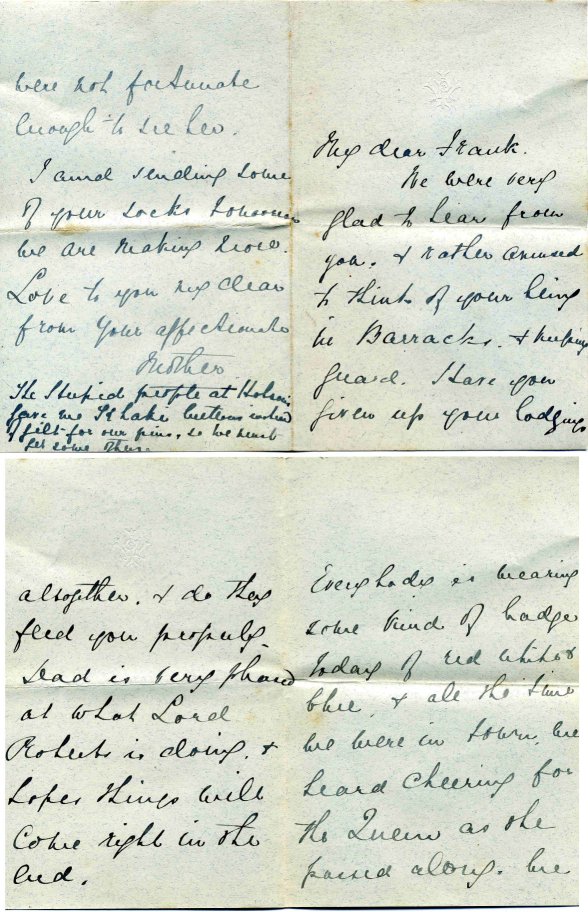 My dear Frank.
We were very
glad to hear from
you. & rather amused
to think of your being
in Barracks. & keeping
guard. Have you
given up your lodgings
altogether. & do they
feed you properly.
Dad is very pleased
at what Lord
Roberts is doing. &
hopes things will
come right in the
end.
Everybody is wearing
some kind of badge
today of red white &
blue, & all the time
we were in town, we
heard cheering for
the Queen as she
passed along. We
were not fortunate
enough to see her.
I am sending some
of your socks tomorrow
we are making more.
Love to you my dear
from your affectionate
Mother
The stupid people at
gave me buttons instead
of gilt for our pins, so we must
get some others.